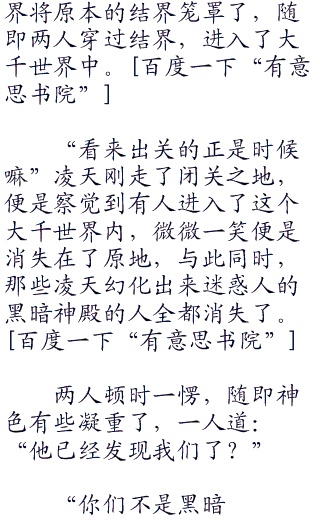 界将原本的结界笼罩了，随
即两人穿过结界，进入了大
千世界中。[百度一下“有意
思书院”]
“看来出关的正是时候
嘛”凌天刚走了闭关之地，
便是察觉到有人进入了这个
大千世界内，微微一笑便是
消失在了原地，与此同时，
那些凌天幻化出来迷惑人的
黑暗神殿的人全都消失了。
[百度一下“有意思书院”]
两人顿时一愣，随即神
色有些凝重了，一人道：
“他已经发现我们了？”
“你们不是黑暗